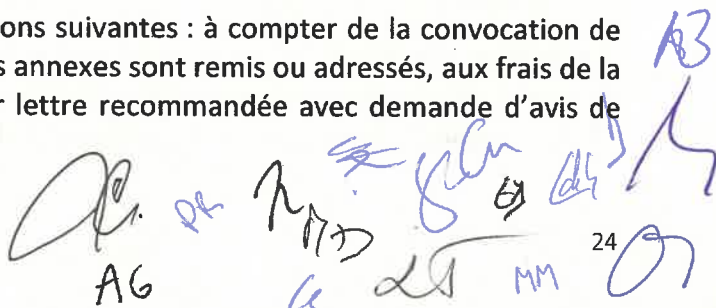 ons suivantes : à compter de la convocation de
s annexes sont remis ou adressés, aux frais de la
r lettre recommandée avec demande d'avis de
PR
MD
24
AG
MM